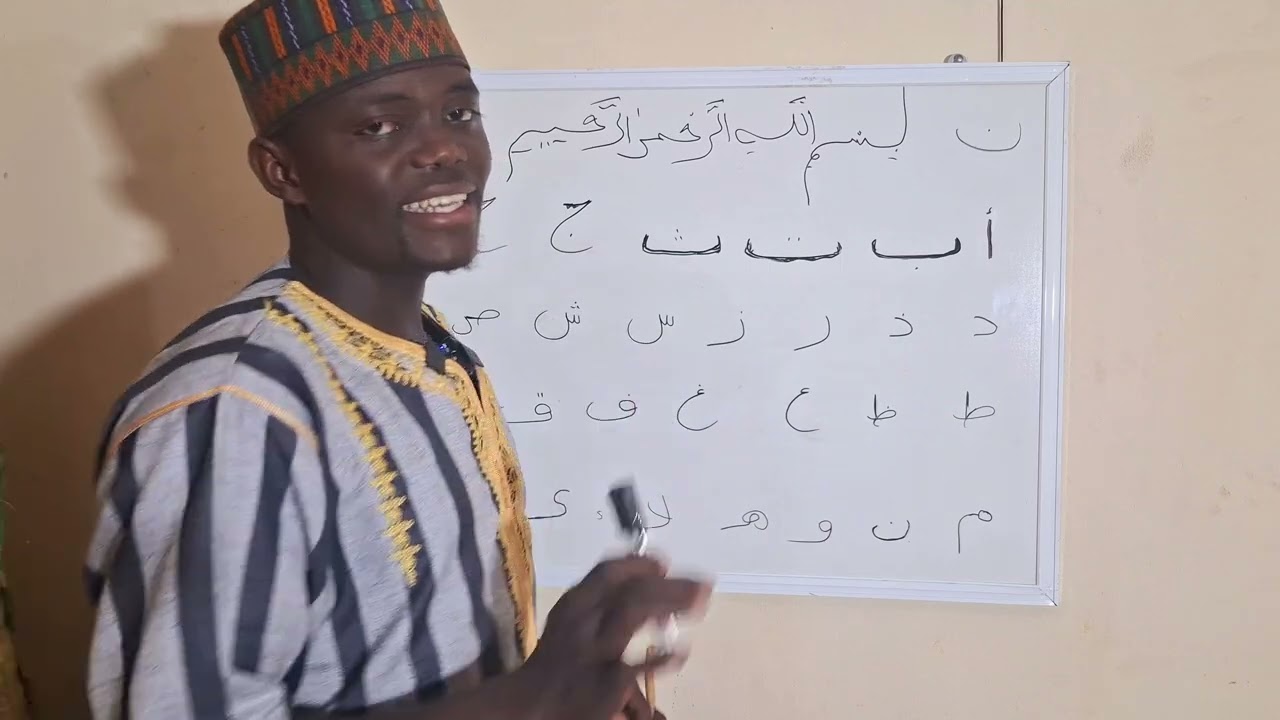 ن بِسْمِ اللَّهِ الرَّحْمٰنِ الرَّحِيمِ
أ ب ت ث ج
د ذ ر ز س ش ص
ط ظ ع غ ف ق
م ن و ه لا ء ى